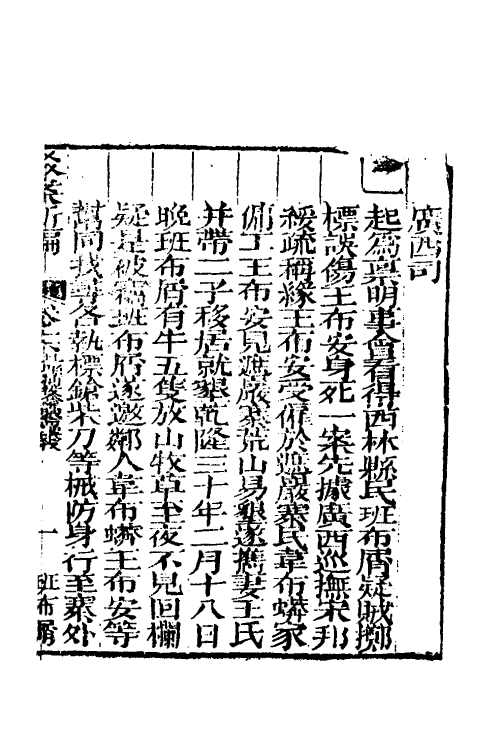 廣西司
一起為稟明事會看得西林縣民班布屑疑賊擲
標誤傷王布安身死一案先據廣西巡撫宋邦
綏疏稱緣王布安受僱於遮嚴寨民韋布蟒家
傭工王布安見遮嚴寨荒山易墾遂攜妻王氏
并帶二子移居就墾乾隆三十年二月十八日
晚班布屑有牛五隻放山牧草至夜不見回欄
疑是被竊班布屑遂邀鄰人韋布蟒王布安等
幫同找尋各執標鎗柴刀等械防身行至寨外
駁案新編 卷 一 班布屑